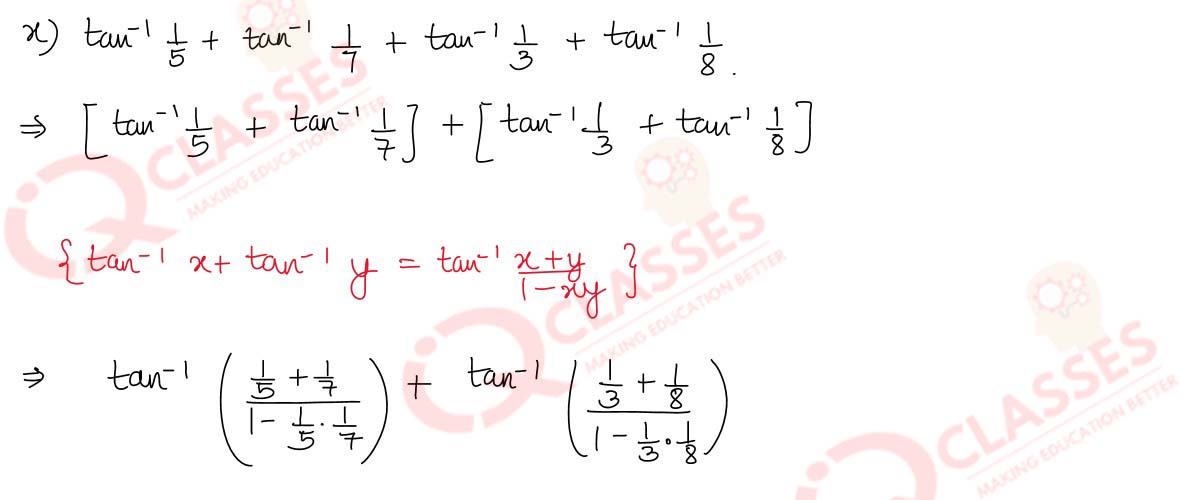 x) tan⁻¹ 1/5 + tan⁻¹ 1/7 + tan⁻¹ 1/3 + tan⁻¹ 1/8.
⇒ [tan⁻¹ 1/5 + tan⁻¹ 1/7] + [tan⁻¹ 1/3 + tan⁻¹ 1/8]
{tan⁻¹ x + tan⁻¹ y = tan⁻¹ (x+y)/(1-xy)}
⇒ tan⁻¹ ((1/5 + 1/7)/(1 - 1/5 · 1/7)) + tan⁻¹ ((1/3 + 1/8)/(1 - 1/3 · 1/8))
iQ CLASSES
MAKING EDUCATION BETTER
iQ CLASSES
MAKING EDUCATION BETTER
iQ CLASSES
MAKING EDUCATION BETTER